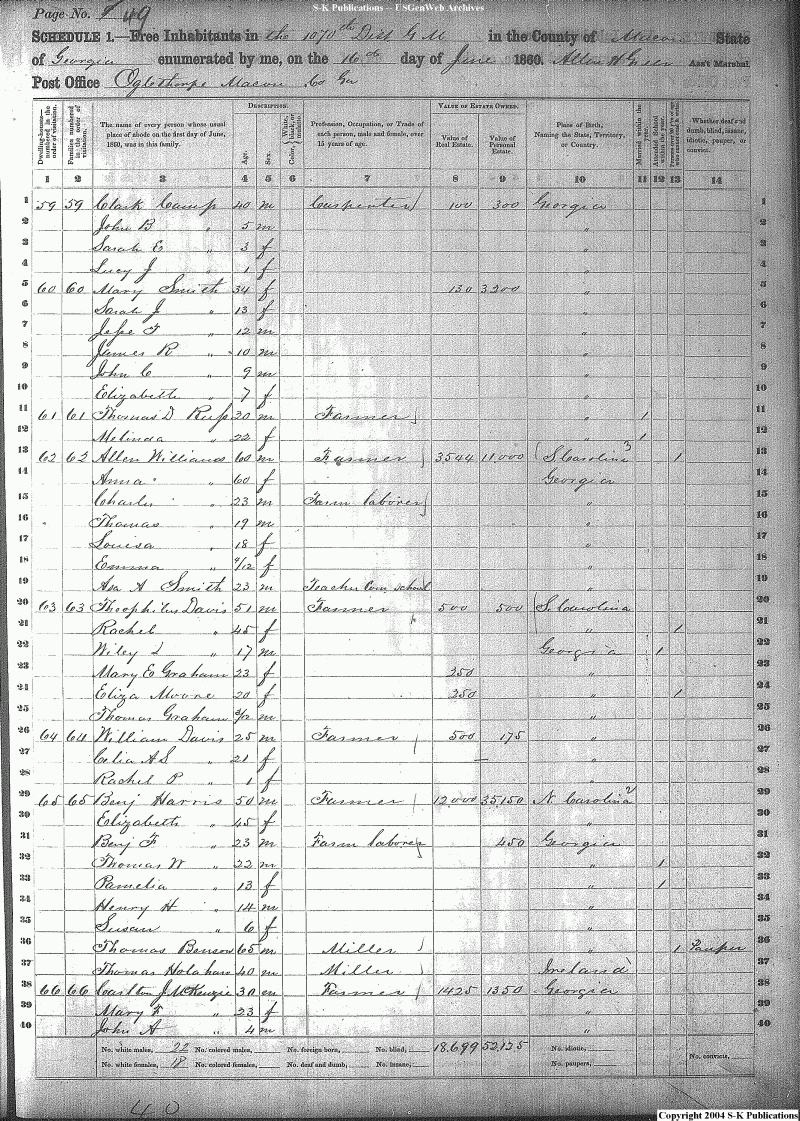 S-K Publications -- USGenWeb Archives
Page No. 49
SCHEDULE 1.—Free Inhabitants in the 1070th Dist G M in the County of Macon State
of Georgia enumerated by me, on the 16th day of June 1860. Allen H Green Ass't Marshal.
Post Office Oglethorpe Macon Co Ga
DESCRIPTION. VALUE OF ESTATE OWNED.
The name of every person whose usual place of abode on the first day of June, 1860, was in this family.
Age. Sex.
Profession, Occupation, or Trade of each person, male and female, over 15 years of age.
Value of Real Estate. Value of Personal Estate.
Place of Birth, Naming the State, Territory, or Country.
Married within the year. Attended School within the year.
Whether deaf and dumb, blind, insane, idiotic, pauper, or convict.
1 2 3 4 5 6 7 8 9 10 11 12 13 14
1 59 59 Clark Camp 40 m Carpenter 100 300 Georgia 1
2 John B " 5 m " 2
3 Sarah E " 3 f " 3
4 Lucy J " 1 f " 4
5 60 60 Mary Smith 34 f 130 3200 " 5
6 Sarah J " 13 f " 6
7 Jesse F " 12 m " 7
8 James R " 10 m " 8
9 John C " 9 m " 9
10 Elizabeth " 7 f " 10
11 61 61 Thomas D Russ 20 m Farmer " 1 11
12 Melinda " 22 f " 1 12
13 62 62 Allen Williams 60 m Farmer 3544 11000 S Carolina 3 1 13
14 Anna " 60 f Georgia 14
15 Charles " 23 m Farm laborer " 15
16 Thomas " 19 m " 16
17 Louisa " 18 f " 17
18 Emma " 9/12 f " 18
19 Asa A Smith 23 m Teacher Com. school " 19
20 63 63 Theophilus Davis 51 m Farmer 500 500 S. Carolina 20
21 Rachel " 45 f " 1 21
22 Wiley L " 17 m Georgia 1 22
23 Mary E Graham 23 f 250 " 23
24 Eliza Moore 20 f 250 " 1 24
25 Thomas Graham 3/12 m " 25
26 64 64 William Davis 25 m Farmer 500 175 " 26
27 Celia A S " 21 f " 27
28 Rachel P " 1 f " 28
29 65 65 Benj Harris 50 m Farmer 12000 35,150 N. Carolina 2 29
30 Elizabeth " 45 f " 30
31 Benj F " 23 m Farm laborer 450 Georgia 31
32 Thomas W " 22 m " 1 32
33 Pamelia " 13 f " 1 33
34 Henry H " 14 m " 34
35 Susan " 6 f " 35
36 Thomas Benson 65 m Miller " 1 Pauper 36
37 Thomas Holahan 40 m Miller Ireland 37
38 66 66 Carlton J McKenzie 30 m Farmer 1425 1350 Georgia 38
39 Mary F " 23 f " 39
40 John A " 4 m " 40
No. white males, 22 No. colored males, No. foreign born, No. blind, 18,699 52,125 No. idiotic,
No. white females, 18 No. colored females, No. deaf and dumb, No. insane, No. paupers, No. convicts,
40
Copyright 2004 S-K Publications